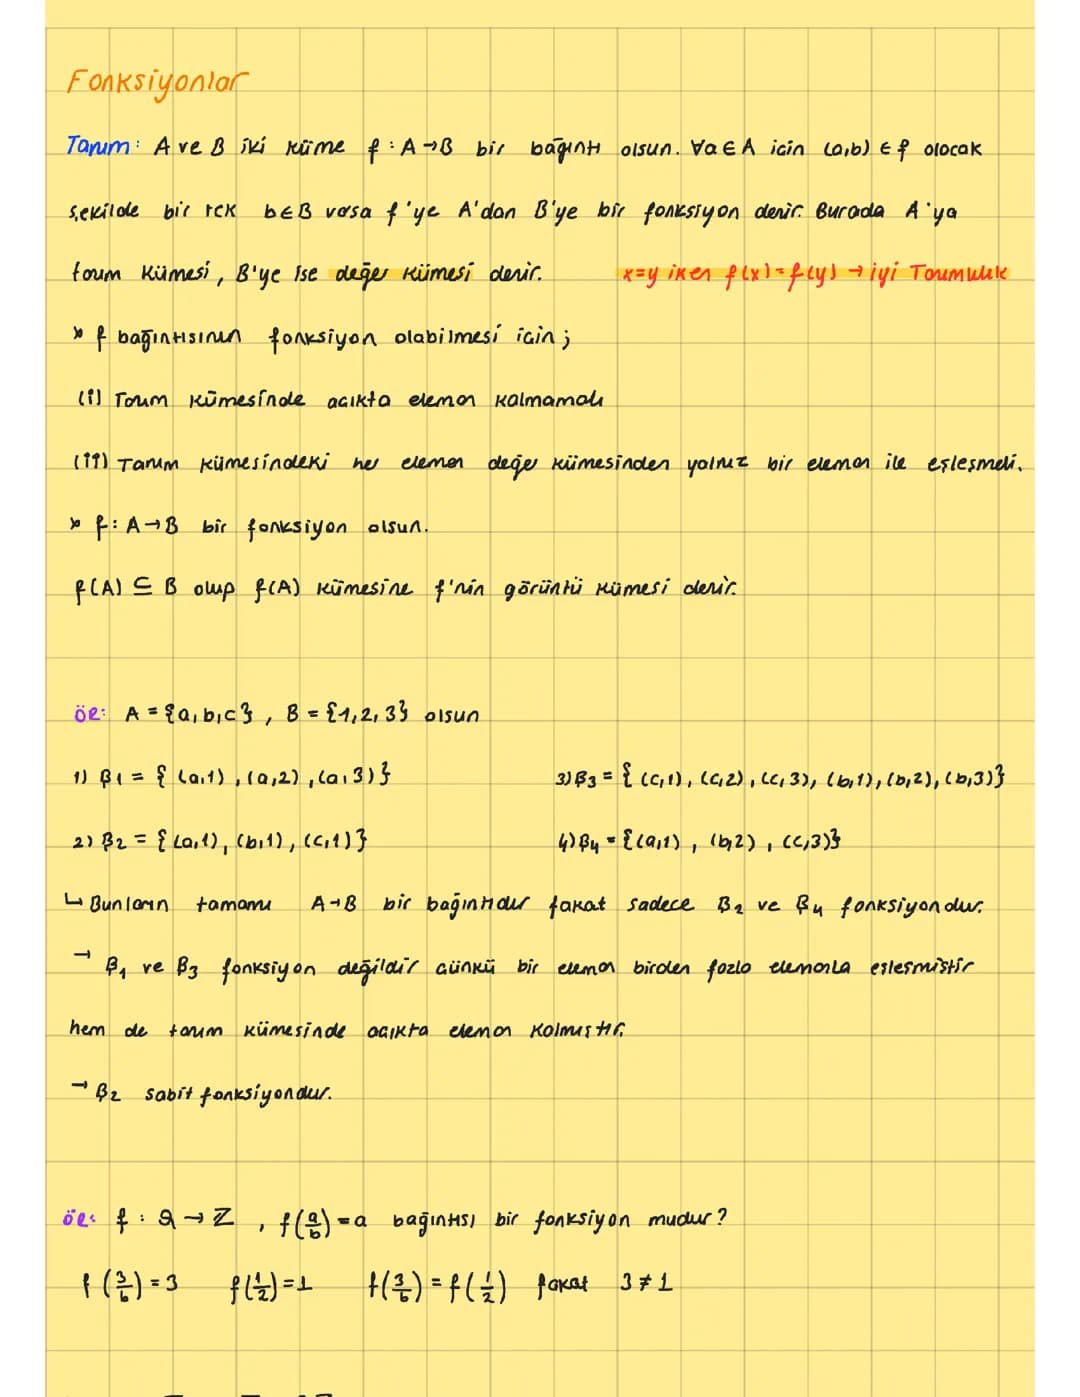 Fonksiyonlar
Tanım: A ve B iki küme f : A→B bir bağıntı olsun. ∀a∈A için (a,b) ∈ f olacak
şekilde bir tek b∈B varsa f'ye A'dan B'ye bir fonksiyon denir. Burada A'ya
tanım kümesi, B'ye ise değer kümesi denir. x=y iken f(x)=f(y) → iyi Tanımlılık
* f bağıntısının fonksiyon olabilmesi için;
(i) Tanım kümesinde açıkta eleman kalmamalı
(ii) Tanım kümesindeki her eleman değer kümesinden yalnız bir eleman ile eşleşmeli.
* f: A→B bir fonksiyon olsun.
f(A) ⊆ B olup f(A) kümesine f'nin görüntü kümesi denir.
ör: A = {a,b,c}, B = {1,2,3} olsun
1) β1 = {(a,1), (a,2), (a,3)} 3) β3 = {(c,1), (c,2), (c,3), (b,1), (b,2), (b,3)}
2) β2 = {(a,1), (b,1), (c,1)} 4) β4 = {(a,1), (b,2), (c,3)}
↳ Bunların tamamı A→B bir bağıntıdır fakat sadece β2 ve β4 fonksiyondur.
→ β1 ve β3 fonksiyon değildir çünkü bir eleman birden fazla elemanla eşleşmiştir
hem de tanım kümesinde açıkta eleman kalmıştır.
→ β2 sabit fonksiyondur.
ör: f : Q → Z, f(a/b) = a bağıntısı bir fonksiyon mudur?
f(3/6) = 3 f(1/2) = 1 f(3/6) = f(1/2) fakat 3 ≠ 1